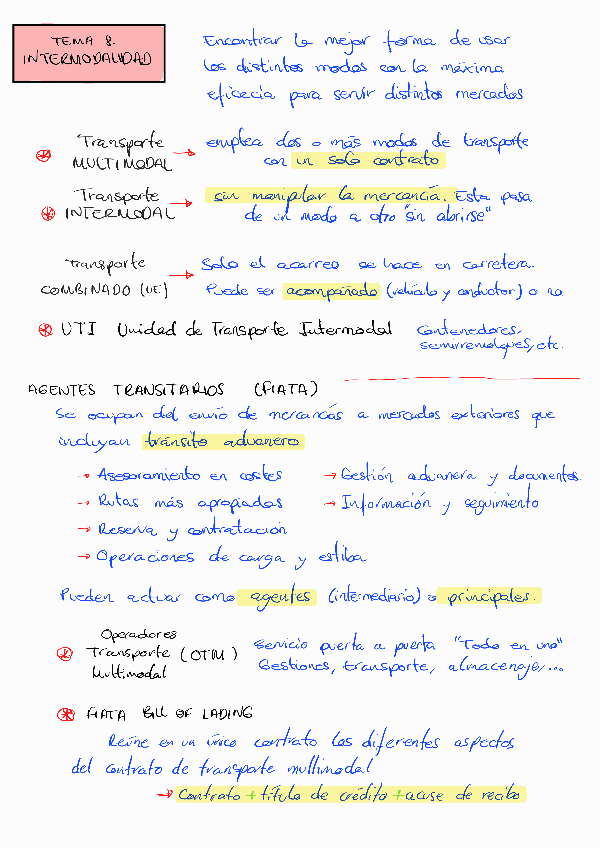 TEMA 8.
INTERMODALIDAD
Encontrar la mejor forma de usar
los distintos modos con la máxima
eficacia para servir distintos mercados
Transporte
MULTIMODAL → emplea dos o más modos de transporte
con un solo contrato
Transporte
INTERMODAL → sin manipular la mercancía. Esta pasa
de un modo a otro "sin abrirse"
Transporte
COMBINADO (UE) → Solo el acarreo se hace en carretera.
Puede ser acompañado (vehículo y conductor) o no
UTI Unidad de Transporte Intermodal contenedores,
semirremolques, etc.
AGENTES TRANSITARIOS (FIATA)
Se ocupan del envío de mercancías a mercados exteriores que
incluyan tránsito aduanero
→ Asesoramiento en costes → Gestión aduanera y documentos.
→ Rutas más apropiadas → Información y seguimiento
→ Reserva y contratación
→ Operaciones de carga y estiba
Pueden actuar como agentes (intermediario) o principales.
Operadores
Transporte (OTM) Servicio puerta a puerta "Todo en uno"
Multimodal Gestiones, transporte, almacenaje,...
FIATA BILL OF LADING
Reúne en un único contrato los diferentes aspectos
del contrato de transporte multimodal
→ Contrato + título de crédito + acuse de recibo